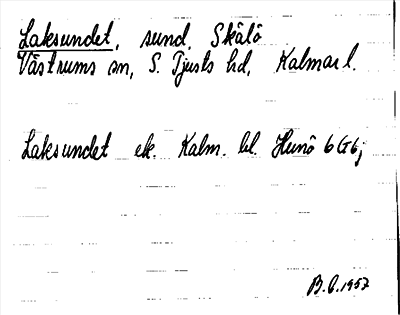 Laksundet, sund, Skälö
Västrums sn, S. Tjusts hd, Kalmar l.
Laksundet ek. Kalm. bl. Hunö 6 G 6j
B.C. 1957